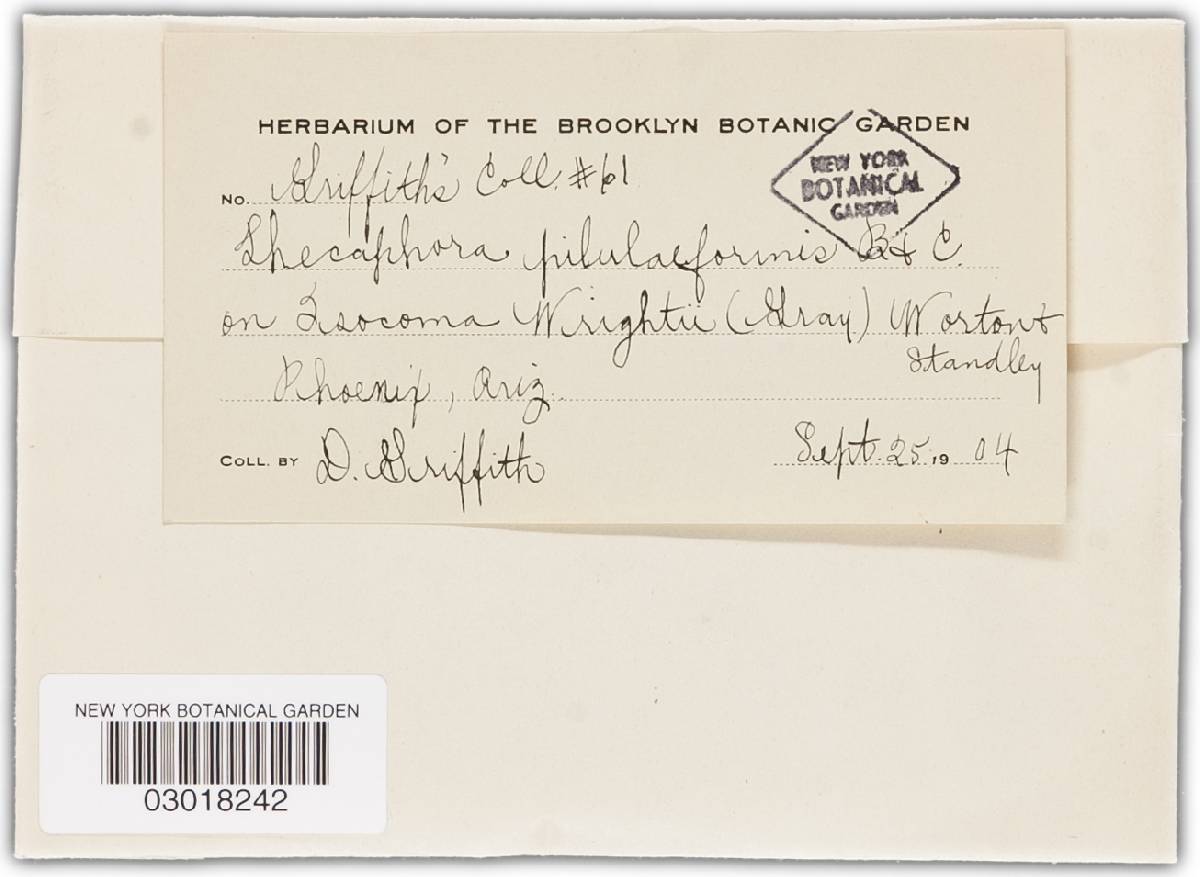 HERBARIUM OF THE BROOKLYN BOTANIC GARDEN
NEW YORK
BOTANICAL
GARDEN
No. Griffith's Coll. #61
Thecaphora pilulaeformis B & C.
on Isocoma Wrightii (Gray) Worton &
Standley
Phoenix, Ariz.
COLL. BY D. Griffith Sept. 25, 19 04
NEW YORK BOTANICAL GARDEN
03018242